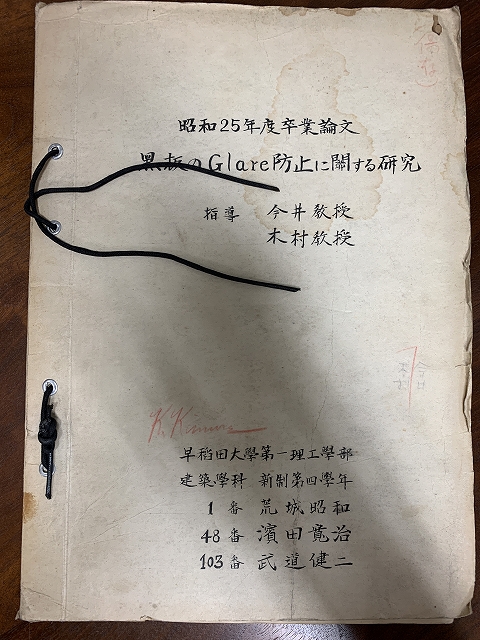 昭和25年度卒業論文
黒板のGlare防止に関する研究
指導 今井教授
木村教授
K. Kimura
早稲田大學第一理工學部
建築學科 新制第四學年
1番 荒城昭和
48番 濱田寛治
103番 武道健二